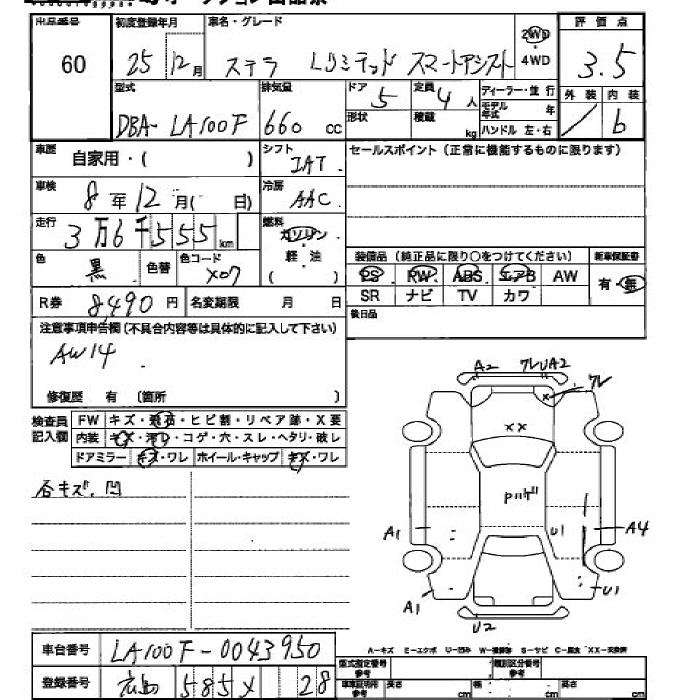 出品番号 初度登録年月 車名・グレード 評価点
60 25 12月 ステラ Lリミテッド スマートアシスト 2WD・4WD 3.5
型式 排気量 ドア 5 定員 4人 ディーラー・並行 外装 内装
DBA- LA100F 660 cc 形状 積載 kg モデル年式 年 / b
ハンドル 左・右
車歴 自家用・( ) シフト IAT セールスポイント(正常に機能するものに限ります)
車検 8年12月( 日) 冷房 AAC
走行 3万6千555km 燃料 ガソリン・軽油 ( )
色 黒 色替 色コード X07 装備品(純正品に限り○をつけてください) 新車保証書
PS RW ABS エアB AW 有・無
R券 8490円 名変期限 月 日 SR ナビ TV カワ
注意事項申告欄(不具合内容等は具体的に記入して下さい) 後日品
AW14
修復歴 有 〔箇所 〕
検査員記入欄 FW キズ・飛石・ヒビ割・リペア跡・X要
内装 キズ・汚レ・コゲ・穴・スレ・ヘタリ・破レ
ドアミラー キズ・ワレ ホイール・キャップ キズ・ワレ
各キズ、凹
A2 ワレUA2
ワレ
X
XX
Pハゲ
A1 U1 A4
A1 U1
U2
A-キズ E-エクボ U-凹み W-補修跡 S-サビ C-腐食 XX-交換済
車台番号 LA100F-0043950
登録番号 広島 585 X 28
型式指定番号参考 類別区分番号
車庫証明用参考 長さ cm 幅 cm 高さ cm